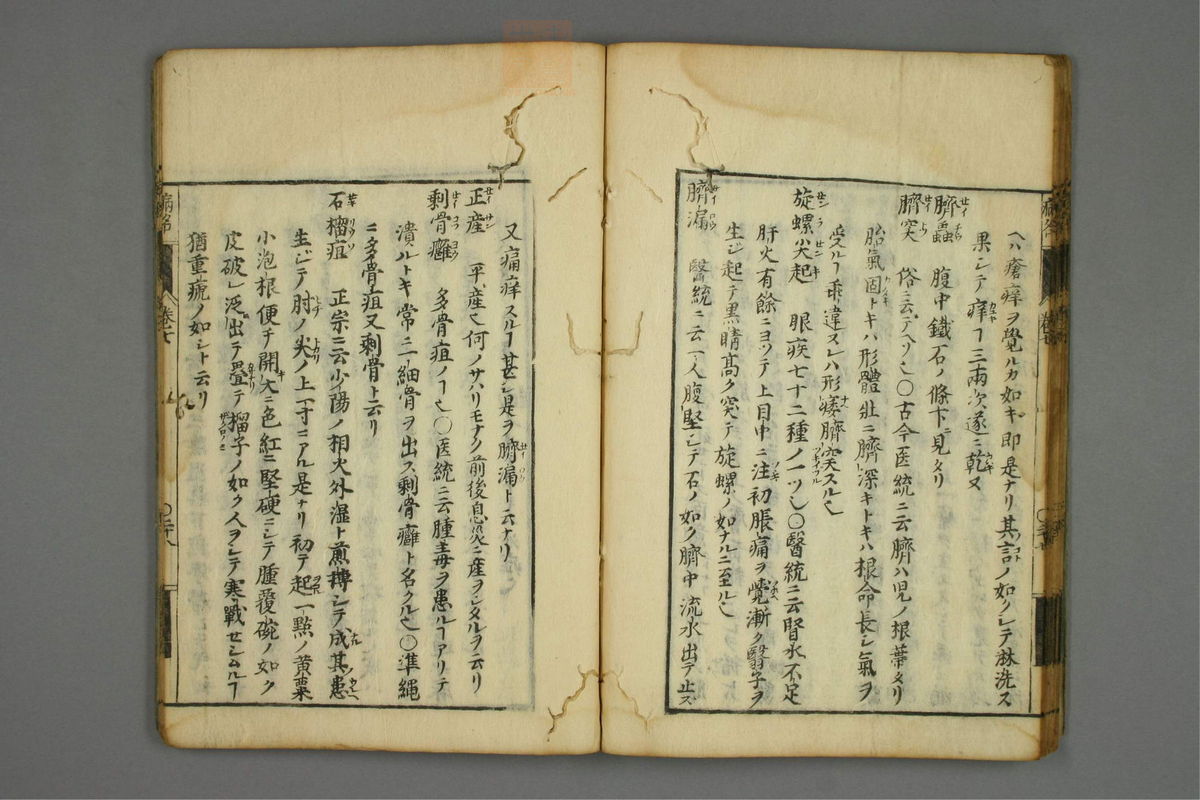 ヘハ瘡痒ヲ覺ルカ如キ即是ナリ其言ノ如クシテ淋洗ス
果シテ痒ヿ三兩次遂ニ乾又
臍蟲 腹中鐵石ノ條下ニ見タリ
臍突 俗ニ云デベソ也〇古今医統ニ云臍ハ児ノ根蔕タリ
胎氣固トキハ形體壯ニ臍深キトキハ根命長シ氣ヲ
受ルヿ乖違スレハ形痿臍突スル也
旋螺尖起 眼疾七十二種ノ一ツ也〇醫統ニ云腎水不足
肝火有餘ニヨツテ上目中ニ注初脹痛ヲ覺漸ク翳子ヲ
生ジ起テ黒睛髙ク突テ旋螺ノ如ナルニ至ル也
臍漏 醫統ニ云一人腹堅シテ石ノ如ク臍中流水出テ止ズ
又痛痒スルヿ甚シ是ヲ臍漏ト云ナリ
正産 平産也何ノサハリモナク前後息災ニ産ヲシタルヲ云リ
剰骨癰 多骨疽ノヿ也〇医統ニ云腫毒ヲ患ルヿアリテ
潰ルトキ常ニ一細骨ヲ出ス剰骨癰ト名クル也〇準繩
ニ多骨疽又剰骨ト云リ
石榴疽 正宗ニ云少陽ノ相火外湿ト煎搏シテ成其患
生ジテ肘ノ尖ノ上一寸ニアル是ナリ初テ起一點ノ黄粟
小泡根便チ開大ニ色紅ニ堅硬ニシテ腫覆碗ノ如ク
皮破レ泛出テ疊テ榴子ノ如ク人ヲシテ寒戰セシムルヿ
猶重瘧ノ如シト云リ
病名
巻七